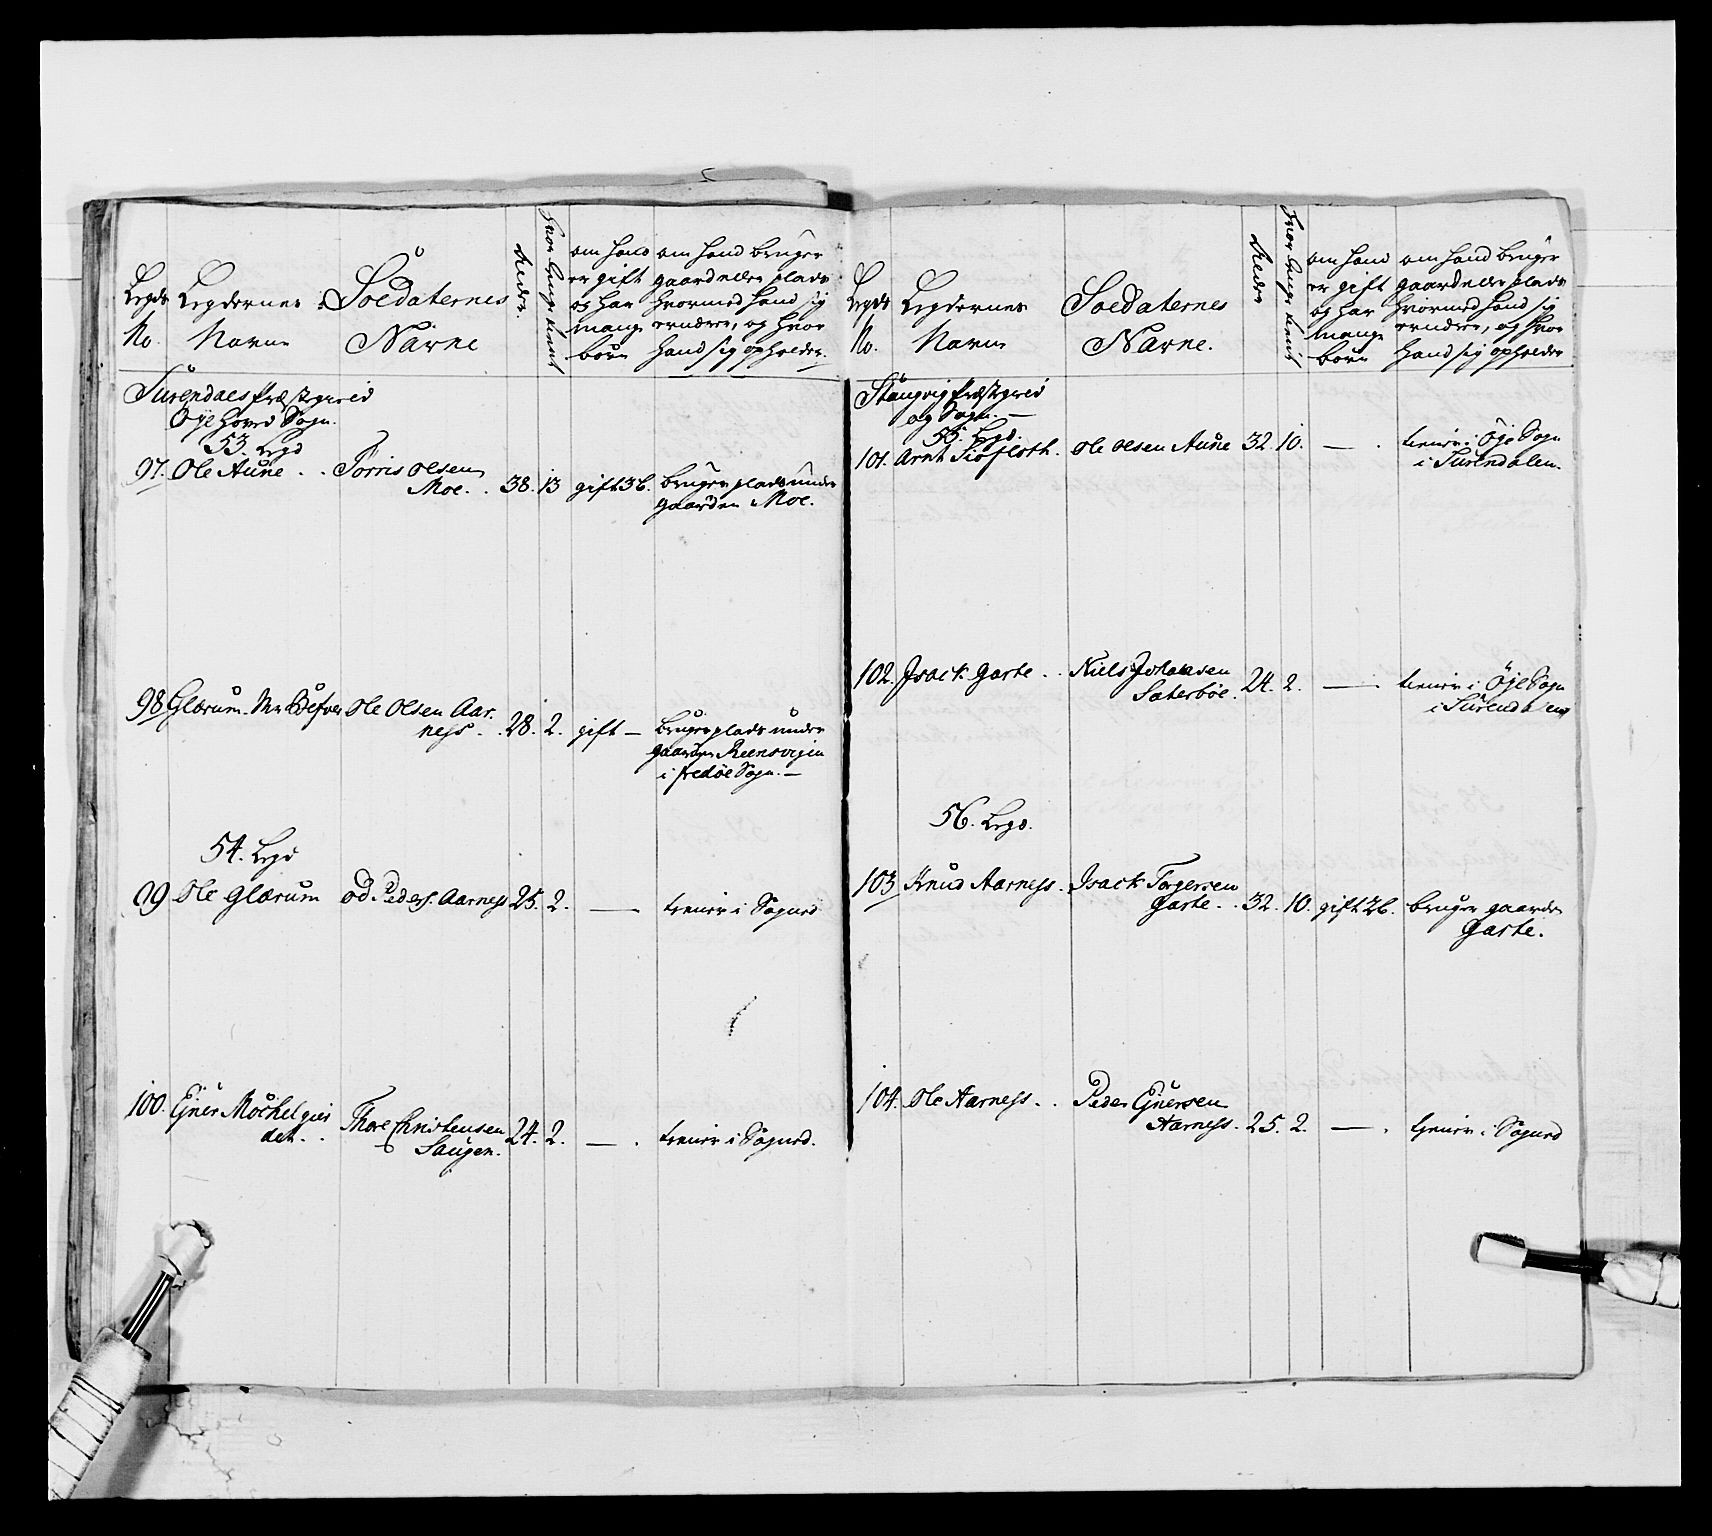 Legds
No.
Legdernes
Navne
Soldaternes
Navne
Alder.
Hvor lenge tient
om hand
er gift
og har
mange
børn
om hand bruger
gaard eller plads
hvormed hand sig
ernærer, og hvor
hand sig opholder.
Surendals Præstegield
Øye Hoved Sogn.
53. Legd
97. Ole Aune . . Torris Olsen
Moe. . 38. 13 gift 3 b. bruger plads under
gaarden Moe.
98 Glærum Ole Olsen Aar-
ness. . 28. 2. gift — bruger plads under
gaarden
i Fredøe Sogn. —
54. Legd
99 Ole Glærum Od Peders. Aarness 25. 2. — tiener i Sogned
100. Ejner Mochelgier
det. . Thore Christensen
Saugen. 24. 2. — . tiener i Sogned.
Legds
No.
Legdernes
Navne
Soldaternes
Navne.
Alder
Hvor lenge tient
om hand
er gift
og har
mange
børn
om hand bruger
gaard eller plads
hvormed hand sig
ernærer, og hvor
hand sig opholder
Stangvig Præstegield
og Sogn. —
55. Legd.
101. Arnt Ole Olsen Aune 32. 10. — . tiener i Øje Sogn
i Surendalen.
102. Isack Garte . . Niels Johansen
Sæterbøe. 24. 2. — tiener i Øje Sogn
i Surendalen
56. Legd.
103 Knud Aarness. Isack Torgersen
Garte. . 32. 10. gift 2 b. bruger gaarden
Garte.
104. Ole Aarness. . Peder Ejnersen
Aarness. 25. 2. — . tjener i Sogned